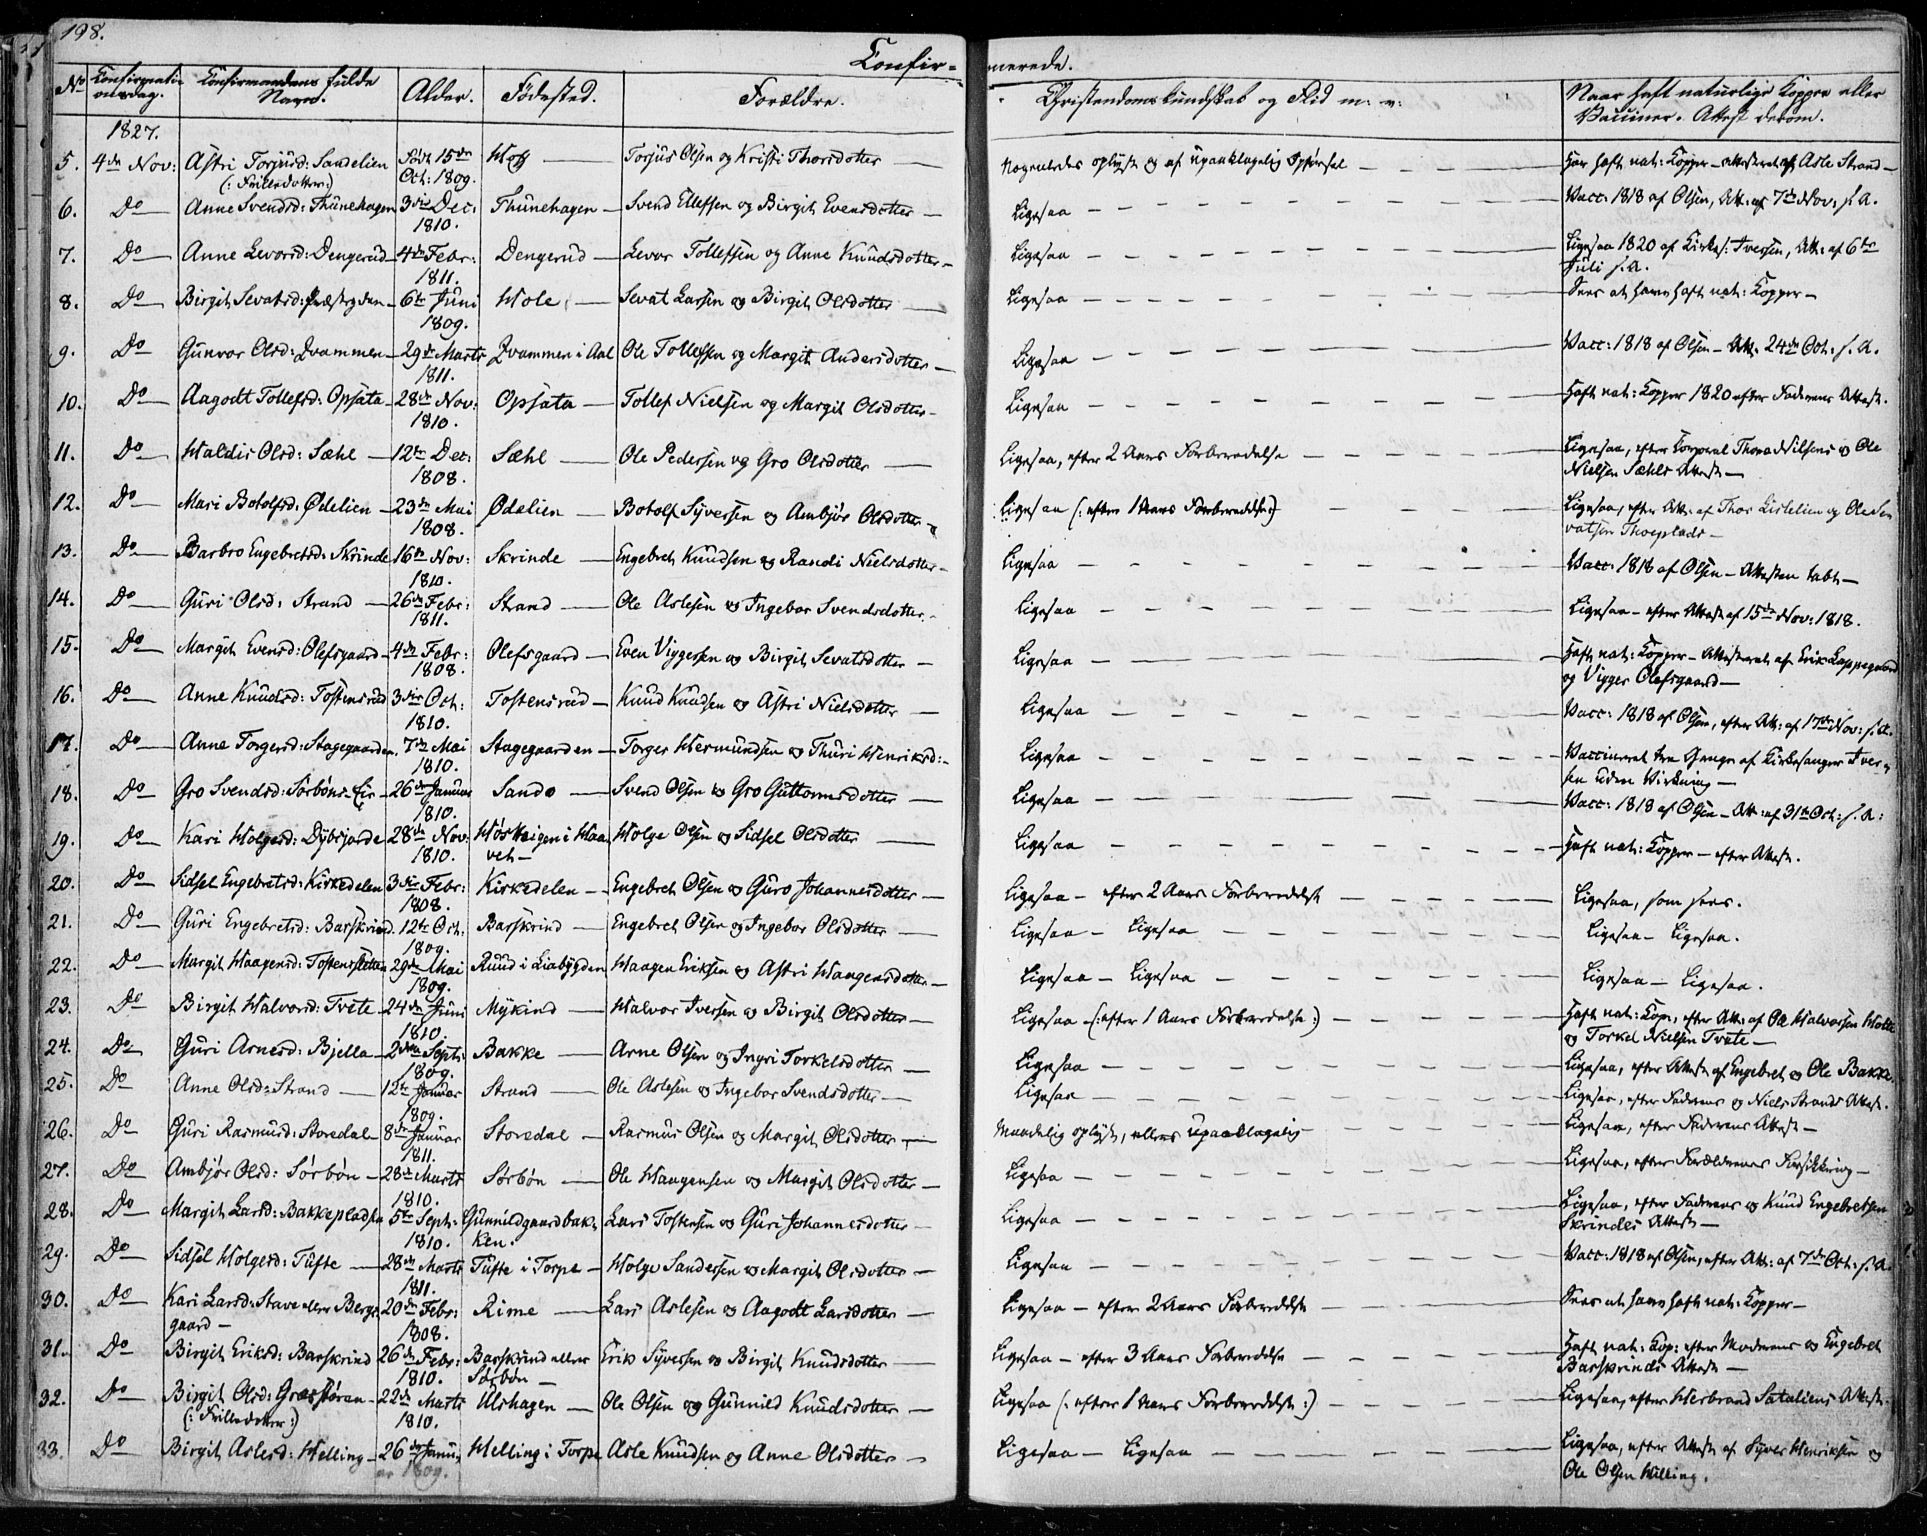 198.
Confirmerede.
No Confirmationsdag. Confirmandens fulde Navn. Alder. Födested. Forældre. Christendomskundskab og Flid m: v: Naar haft naturlige Kopper eller Vacciner. Attest derom.
1827.
5. 4de Nov: Astri Torjusd: Sandelien (: Frilledotter:) Född 15de Oct: 1809. Torjus Olsen og Kristi Thorsdotter — Nogenledes oplyst og af upaaklagelig Opførsel — Har haft nat: Kopper — attesteret af Asle Strand —
6. Do Anne Svendsd: Thunehagen 3die Dec: 1810. Thunehagen — Svend Ellefsen og Birgit Evensdotter — Ligesaa — Vacc: 1818 af Olsen, Att: af 7de Nov: s. A.
7. Do Anne Levorsd: Dengerud 4de Febr: 1811. Dengerud — Levor Tollefsen og Anne Knudsdotter — Ligesaa — Ligesaa 1820 af Kirkes: Iversen, Att: af 6te Juli s. A.
8. Do Birgit Sevatsd: 6te Juni 1809. Hole — Sevat Larsen og Birgit Olsdotter — Ligesaa — Sees at have haft nat: Kopper —
9. Do Gunvor Olsd: Qvammen — 29de Marts 1811. Qvammen i Aal Ole Tollefsen og Margit Andersdotter — Ligesaa — Vacc: 1818 af Olsen — Att: 24de Oct: s. A.
10. Do Aagodt Tollefsd: Opsata — 28de Nov: 1810. Opsata — Tollef Nielsen og Margit Olsdotter — Ligesaa — Haft nat: Kopper 1820 efter Faderens Attest.
11. Do Haldis Olsd: Sæhl — 12te Dec: 1808. Sæhl — Ole Pedersen og Gro Olsdotter — Ligesaa, efter 2 Aars Forberedelse — Ligesaa, efter Corporal Thore Nilsens og Ole Nielsen Sæhls Attest —
12. Do Mari Botolfsd: Ødelien — 23de Mai 1808. Ødelien — Botolf Syversen og Ambjør Olsdotter — Ligesaa (: efter 1 Aars Forberedelse:) — Ligesaa, efter Att: af Thor Lislelien og Ole Sevatsen Thoeplads —
13. Do Barbro Engebretsd: Skrinde 16de Nov: 1810. Skrinde — Engebret Knudsen og Randi Nielsdotter — Ligesaa — Vacc: 1818 af Olsen — Attesten tabt —
14. Do Guri Olsd: Strand — 26de Febr: 1811. Strand — Ole Aslesen og Ingebor Svendsdotter — Ligesaa — Ligesaa — efter Attest af 15de Nov: 1818.
15. Do Margit Evensd: Olefsgaard — 4de Febr: 1808. Olefsgaard — Even Viggesen og Birgit Sevatsdotter — Ligesaa — Haft nat: Kopper — Attesteret af Erik Lappegaard og Vigger Olefsgaard —
16. Do Anne Knudsd: Tostensrud 3die Oct: 1810. Tostensrud — Knud Knudsen og Astri Nielsdotter — Ligesaa — Vacc: 1818 af Olsen, efter Att: af 17de Nov: s. A.
17. Do Anne Torgersd: Stagegaarden 7de Mai 1810. Stagegaarden — Torger Hermundsen og Thuri Henriksd: — Ligesaa — Vaccineret tre Gange af Kirkesanger Iversen uden Virkning —
18. Do Gro Svendsd: Sørbøns-Eie — 26de Januar 1810. Sando — Svend Olsen og Gro Guttormsdotter — Ligesaa — Vacc: 1818 af Olsen — Att: af 31te Oct: s. A:
19. Do Kari Holgersd: Dybsjorde 28de Nov: 1810. i Haavet — Holge Olsen og Sidsel Olsdotter — Ligesaa — Haft nat: Kopper — efter Attest.
20. Do Sidsel Engebretsd: Kirkedelen 3die Febr: 1808. Kirkedelen — Engebret Olsen og Guro Johannesdotter — Ligesaa — efter 2 Aars Forberedelse — Ligesaa, som sees.
21. Do Guri Engebretsd: Barskrind. 12te Oct: 1809. Barskrind — Engebret Olsen og Ingebor Olsdotter — Ligesaa — Ligesaa — Ligesaa — Ligesaa.
22. Do Margit Haagensd: Tostensletten 29de Mai 1809. Ruud i Liabygden Haagen Eriksen og Astri Haagensdotter — Ligesaa — Ligesaa — Ligesaa — Ligesaa.
23. Do Birgit Halvorsd: Tvete — 24de Juni 1810. Mykind — Halvor Iversen og Birgit Olsdotter — Ligesaa — (: efter 1 Aars Forberedelse:) — Haft nat: Kop:, efter Att: af Ole Halvorsen og Torkel Nielsen Tvete —
24. Do Guri Arnesd: Bjella — 2den Sept: 1809. Bakke — Arne Olsen og Ingri Torkelsdotter — Ligesaa — Ligesaa, efter Attest af Engebret og Ole Bakke.
25. Do Anne Olsd: Strand — 12te Januar 1809. Strand — Ole Aslesen og Ingebor Svendsdotter — Ligesaa — Ligesaa, efter Faderens og Niels Strands Attest.
26. Do Guri Rasmusd: Storedal — 8de Januar 1811. Storedal — Rasmus Olsen og Margit Olsdotter — Maadelig oplyst, ellers upaaklagelig — Ligesaa, efter Faderens Attest —
27. Do Ambjør Olsd: Sørbøn — 28de Marts 1810. Sørbøn — Ole Haagensen og Margit Olsdotter — Ligesaa — Ligesaa, efter Forældrenes Forsikkring —
28. Do Margit Larsd: Bakkepladsen 5te Sept: 1810. Gunnildgaardbakken. Lars Tostensen og Guri Johannesdotter — Ligesaa — Ligesaa, efter Faderens og Knud Engebretsen Skrindes Attest —
29. Do Sidsel Holgersd: Tufte — 28de Marts 1811. Tufte i Torpe — Holge Sandersen og Margit Olsdotter — Ligesaa — Vacc: 1818 af Olsen, efter Att: af 7de Oct: s. A.
30. Do Kari Larsd: Stave eller Berggaard — 20de Febr: 1808. Rime — Lars Aslesen og Aagodt Larsdotter — Ligesaa — efter 2 Aars Forberedelse — Sees at have haft nat: Kopper —
31. Do Birgit Eriksd: Barskrind 26de Febr: 1810. Barskrind eller Sørbøn — Erik Syversen og Birgit Knudsdotter — Ligesaa — efter 3 Aars Forberedelse — Haft nat: Kop: efter Moderens og Engebret Barskrinds Attest —
32. Do Birgit Olsd: Græsføran — (: Frilledotter:) 22de Marts 1810. Ulshagen — Ole Olsen og Gunnild Knudsdotter — Ligesaa (: efter 1 Aars Forberedelse:) — Ligesaa, efter Herbrand Sataliens Attest.
33. Do Birgit Aslesd: Helling — 26de Januar 1809. Helling i Torpe Asle Knudsen og Anne Olsdotter — Ligesaa — Ligesaa — Ligesaa, efter Attest af Syver Henriksen og Ole Olsen Helling.